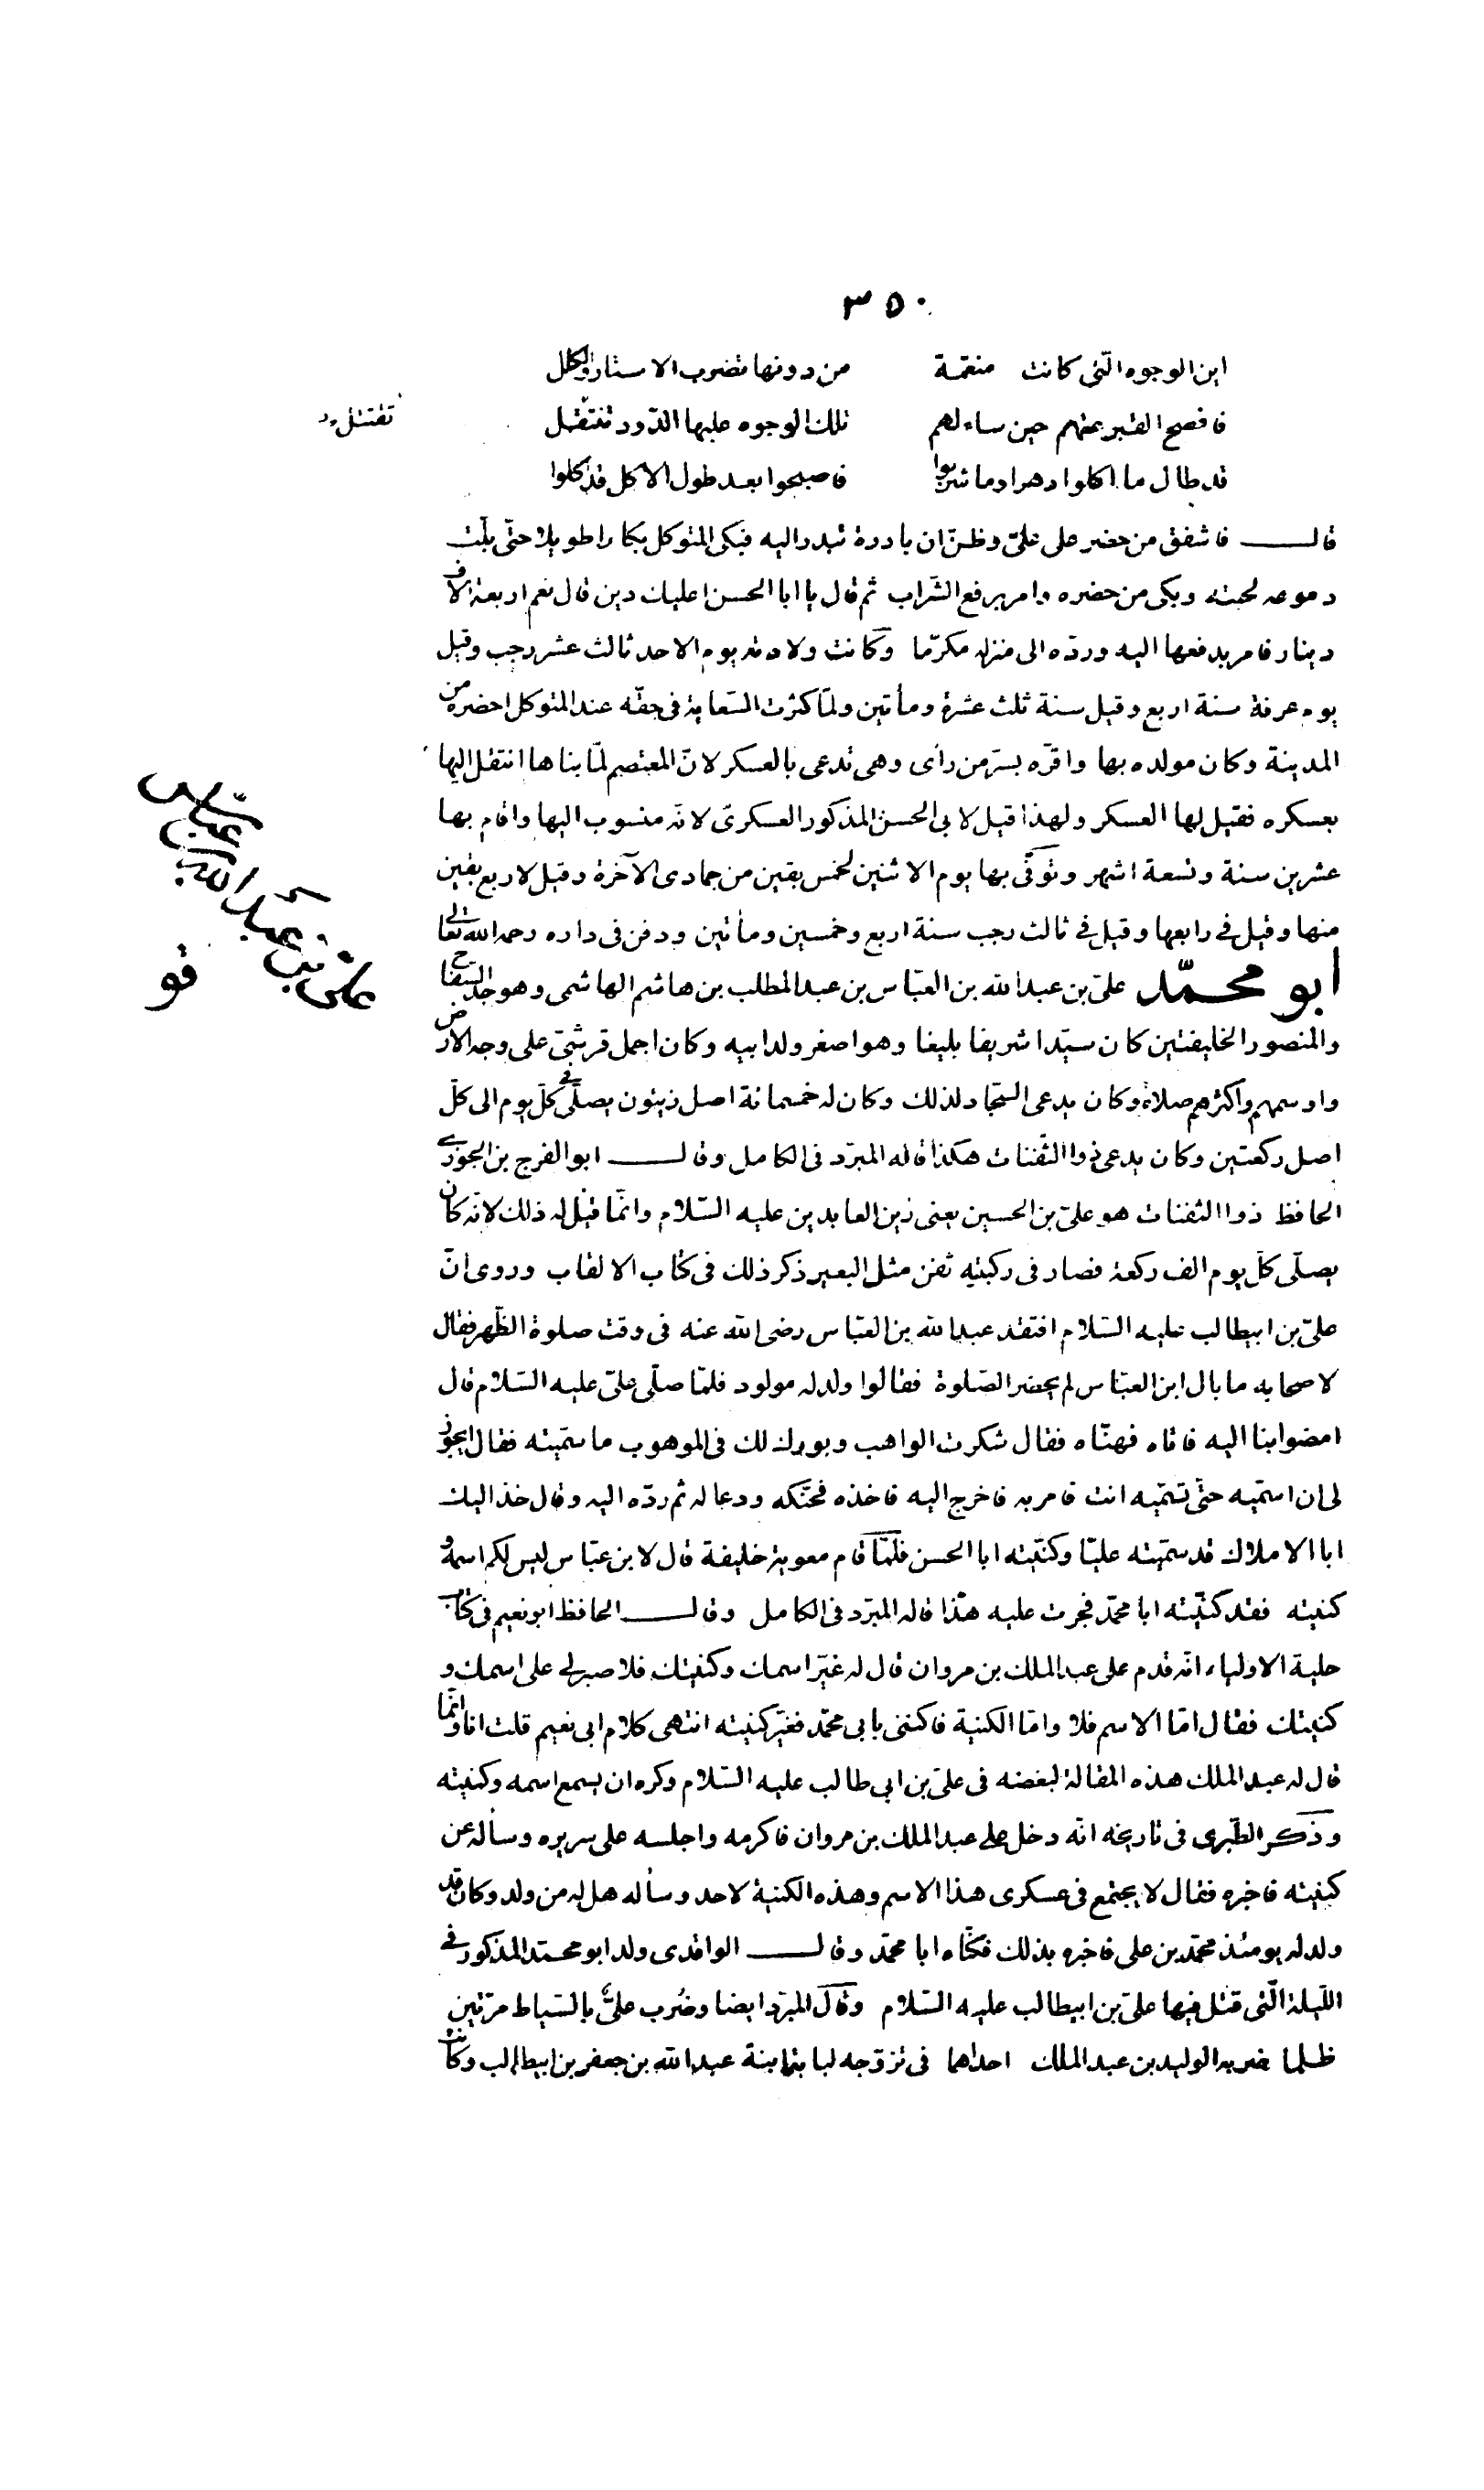 ٣٥٠
اين الوجوه الّتى كانت منعّمة من دونها تضرب الاستار والكلل
فافصح القبر عنهم حين ساءلهم تلك الوجوه عليها الدّود تنتقل
تقتتل
قد طال ما اكلوا دهرا وما شربوا فاصبحوا بعد طول الاكل قد اكلوا
قال فاشفق من حضر على علىّ وظنّ ان بادرة تبدر اليه فبكى المتوكل بكاء طويلا حتّى بلّت
دموعه لحيته وبكى من حضره وامر برفع الشّراب ثم قال يا ابا الحسن اعليك دين قال نعم اربعة الاف
دينار فامر بدفعها اليه وردّه الى منزله مكرّما وكانت ولادته يوم الاحد ثالث عشر رجب وقيل
يوم عرفة سنة اربع وقيل سنة ثلث عشرة ومأتين ولمّا كثرت السّعاية فى حقّه عند المتوكل احضره من
المدينة وكان مولده بها واقرّه بسرّ من رأى وهى تدعى بالعسكر لانّ المعتصم لمّا بناها انتقل اليها
بعسكره فقيل لها العسكر ولهذا قيل لابى الحسن المذكور العسكرىّ لانّه منسوب اليها واقام بها
عشرين سنة وتسعة اشهر وتوفّى بها يوم الاثنين لخمس بقين من جمادى الآخرة وقيل لاربع بقين
منها وقيل فى رابعها وقيل فى ثالث رجب سنة اربع وخمسين ومأتين ودفن فى داره رحمه الله تعالى
علىّ بن عبد الله بن عبّاس
قو
أبو محمّد علىّ بن عبد الله بن العبّاس بن عبد المطلب بن هاشم الهاشمى وهو جد السّفاح
والمنصور الخليفتين كان سيّدا شريفا بليغا وهو اصغر ولد ابيه وكان اجمل قرشىّ على وجه الارض
واوسمهم واكثرهم صلاة وكان يدعى السّجاد لذلك وكان له خمسمائة اصل زيتون يصلّى فى كلّ يوم الى كلّ
اصل ركعتين وكان يدعى ذو الثّفنات هكذا قاله المبرّد فى الكامل وقال ابو الفرج بن الجوزى
الحافظ ذوا الثفنات هو علىّ بن الحسين يعنى زين العابدين عليه السّلام وانّما قيل له ذلك لانّه كان
يصلّى كلّ يوم الف ركعة فصار فى ركبتيه ثفن مثل البعير ذكر ذلك فى كتاب الالقاب وروى انّ
علىّ بن ابيطالب عليه السّلام افتقد عبد الله بن العبّاس رضى الله عنه فى وقت صلوة الظّهر فقال
لاصحابه ما بال ابن العبّاس لم يحضر الصّلوة فقالوا ولد له مولود فلمّا صلّى علىّ عليه السّلام قال
امضوا بنا اليه فاتاه فهنّاه فقال شكرت الواهب وبورك لك فى الموهوب ما سمّيته فقال ايجوز
لى ان اسمّيه حتّى تسمّيه انت فامر به فاخرج اليه فاخذه فحنّكه ودعا له ثم ردّه اليه وقال خذ اليك
ابا الاملاك قد سمّيته عليّا وكنّيته ابا الحسن فلمّا قام معوية خليفة قال لابن عبّاس ليس لكم اسمه و
كنيته فقد كنّيته ابا محمّد فجرت عليه هكذا قاله المبرّد فى الكامل وقال الحافظ ابو نعيم فى كتاب
حلية الاولياء انّه قدم على عبد الملك بن مروان قال له غيّر اسمك وكنيتك فلا صبر لى على اسمك و
كنيتك فقال امّا الاسم فلا وامّا الكنية فاكننى بابى محمّد فغيّر كنيته انتهى كلام ابى نعيم قلت انا وانّما
قال له عبد الملك هذه المقالة لبغضه فى علىّ بن ابى طالب عليه السّلام وكره ان يسمع اسمه وكنيته
وذكر الطّبرى فى تاريخه انّه دخل على عبد الملك بن مروان فاكرمه واجلسه على سريره وسأله عن
كنيته فاخبره فقال لا يجتمع فى عسكرى هذا الاسم وهذه الكنية لاحد وسأله هل له من ولد وكان قد
ولد له يومئذ محمّد بن على فاخبره بذلك فكنّاه ابا محمّد وقال الواقدى ولد ابو محمّد المذكور فى
اللّيلة الّتى قتل فيها علىّ بن ابيطالب عليه السّلام وقال المبرّد ايضا وضُرب علىٌّ بالسّياط مرّتين
ظلما ضربه الوليد بن عبد الملك احداهما فى تزوّجه لبابة ابنة عبد الله بن جعفر بن ابيطالب وكانت